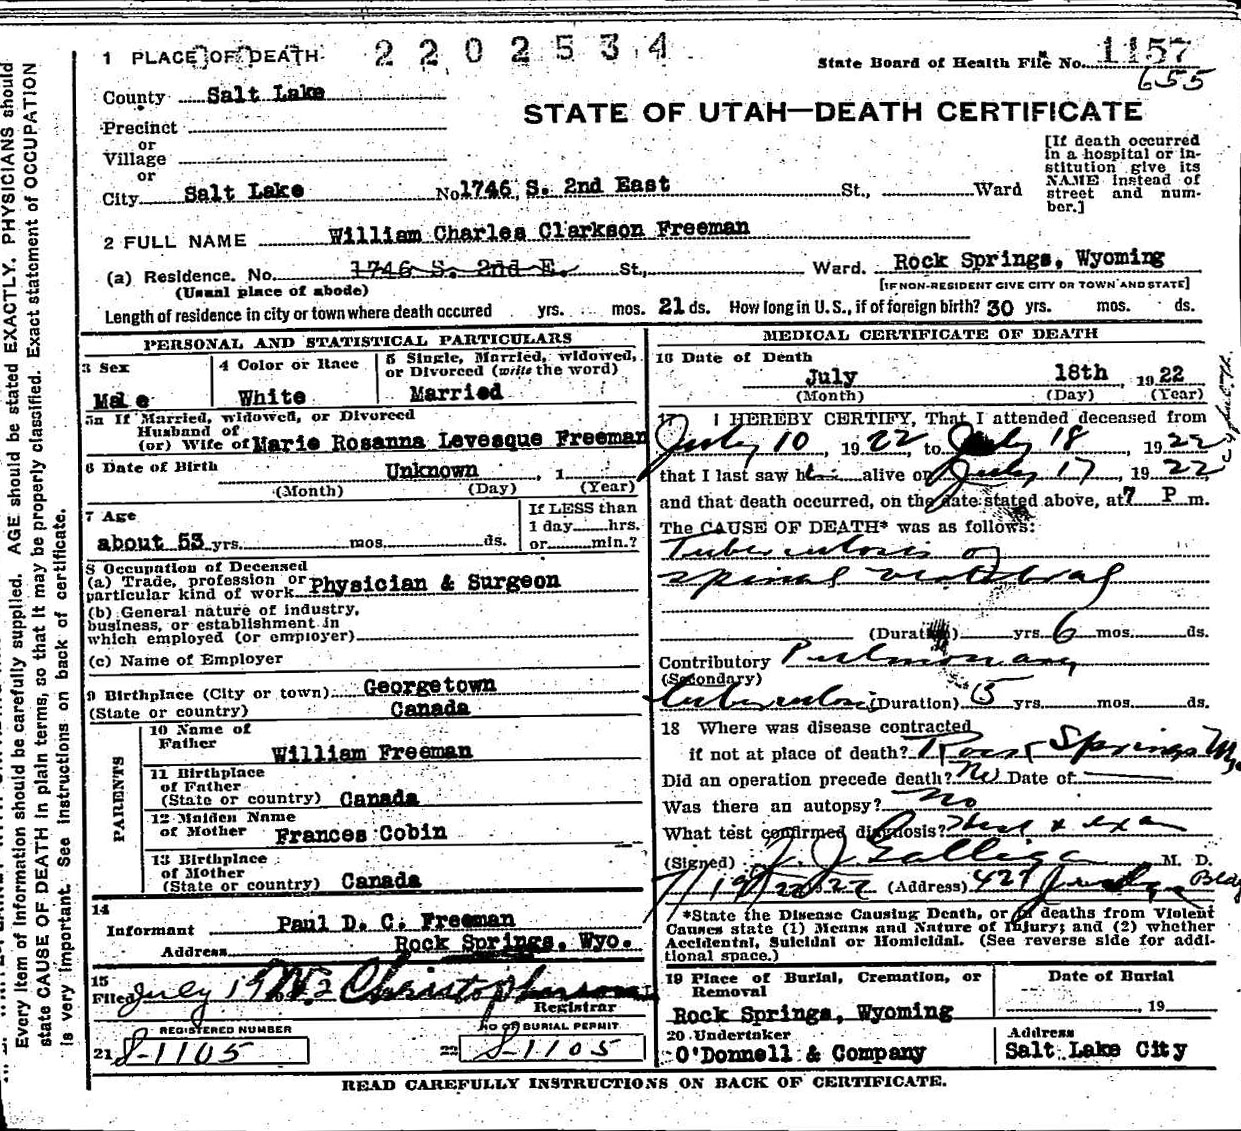 1 PLACE OF DEATH 2202534
State Board of Health File No. 1157
655
County Salt Lake
STATE OF UTAH—DEATH CERTIFICATE
Precinct
or
Village
or
City Salt Lake No 1746 S. 2nd East St., Ward
[If death occurred in a hospital or in-
stitution give its
NAME instead of
street and num-
ber.]
2 FULL NAME William Charles Clarkson Freeman
(a) Residence. No. 1746 S. 2nd E. St., Ward. Rock Springs, Wyoming
(Usual place of abode) [IF NON-RESIDENT GIVE CITY OR TOWN AND STATE]
Length of residence in city or town where death occured yrs. mos. 21 ds. How long in U.S., if of foreign birth? 30 yrs. mos. ds.
PERSONAL AND STATISTICAL PARTICULARS
3 Sex
Male
4 Color or Race
White
5 Single, Married, widowed,
or Divorced (write the word)
Married
5a If Married, widowed, or Divorced
Husband of
(or) Wife of Marie Rosanna Levesque Freeman
6 Date of Birth Unknown , 1
(Month) (Day) (Year)
7 Age
about 53 yrs. mos. ds.
If LESS than
1 day hrs.
or min.?
8 Occupation of Deceased
(a) Trade, profession or
particular kind of work Physician & Surgeon
(b) General nature of industry,
business, or establishment in
which employed (or employer)
(c) Name of Employer
9 Birthplace (City or town) Georgetown
(State or country) Canada
PARENTS
10 Name of
Father William Freeman
11 Birthplace
of Father
(State or country) Canada
12 Maiden Name
of Mother Frances Cobin
13 Birthplace
of Mother
(State or country) Canada
14
Informant Paul D. C. Freeman
Address Rock Springs, Wyo.
15
Filed July 19
Registrar
REGISTERED NUMBER
21 S-1105
NO OF BURIAL PERMIT
22 S-1105
MEDICAL CERTIFICATE OF DEATH
16 Date of Death
July 18th 1922
(Month) (Day) (Year)
17 I HEREBY CERTIFY, That I attended deceased from
July 10, 1922 to July 18, 1922
that I last saw him alive on July 17, 1922,
and that death occurred, on the date stated above, at 7 P m.
The CAUSE OF DEATH* was as follows:
Tuberculosis of
spinal vertebrae
(Duration) yrs. 6 mos. ds.
Contributory Pulmonary
(Secondary)
tuberculosis (Duration) 5 yrs. mos. ds.
18 Where was disease contracted
if not at place of death? Rock Springs Wyo
Did an operation precede death? No Date of
Was there an autopsy? no
What test confirmed diagnosis?
(Signed) J. J. Galligan M. D.
7/19/22 1922 (Address) 427 Judge Bldg
*State the Disease Causing Death, or in deaths from Violent
Causes state (1) Means and Nature of Injury; and (2) whether
Accidental, Suicidal or Homicidal. (See reverse side for addi-
tional space.)
19 Place of Burial, Cremation, or
Removal
Rock Springs, Wyoming
Date of Burial
, 19
20 Undertaker
O'Donnell & Company
Address
Salt Lake City
READ CAREFULLY INSTRUCTIONS ON BACK OF CERTIFICATE.
Every item of information should be carefully supplied. AGE should be stated EXACTLY. PHYSICIANS should
state CAUSE OF DEATH in plain terms, so that it may be properly classified. Exact statement of OCCUPATION
is very important. See instructions on back of certificate.